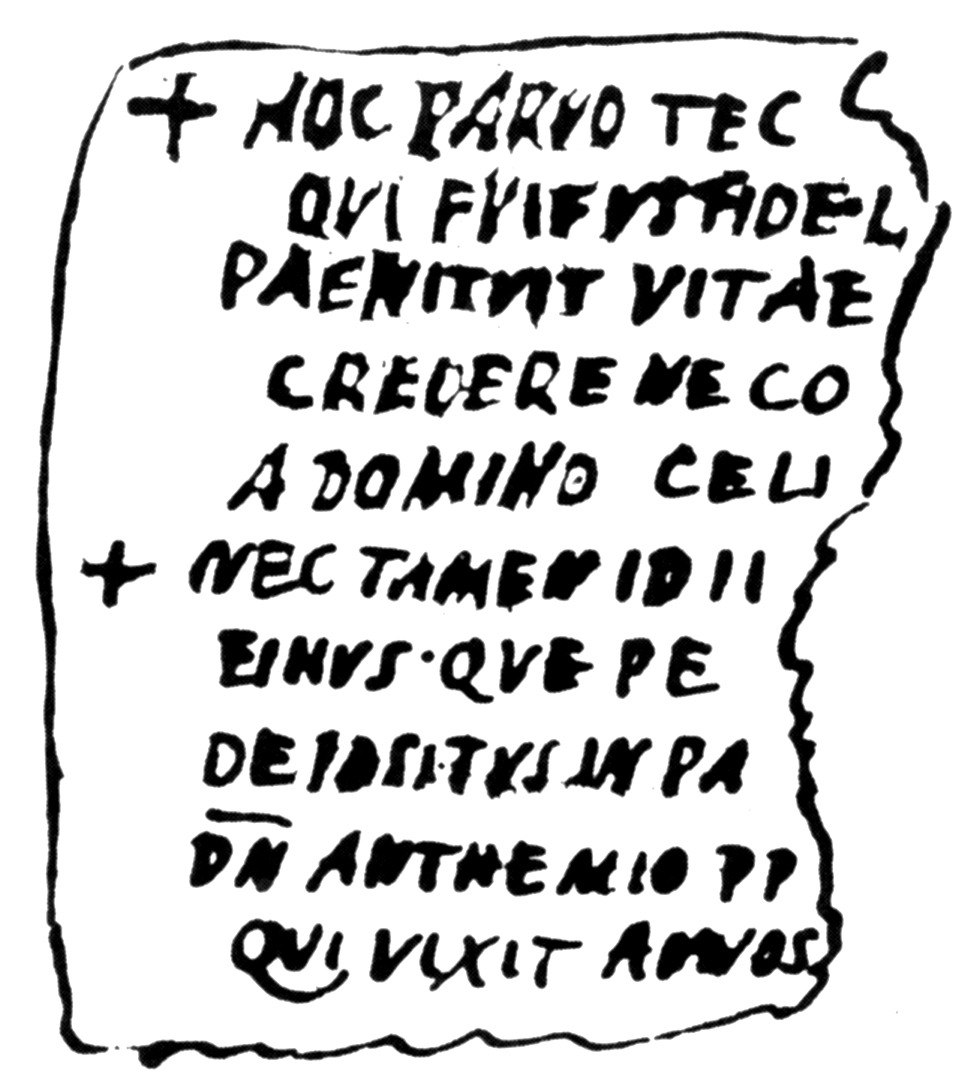 + HOC PARVO TEC
QVI FVIT VSTA FIDE L
PAENITVIT VITAE
CREDERE NE CO
A DOMINO CELI
+ NEC TAMEN ID II
EINVS · QVE PE
DEPOSITVS IN PA
DN ANTHEMIO PP
QVI VIXIT ANNOS